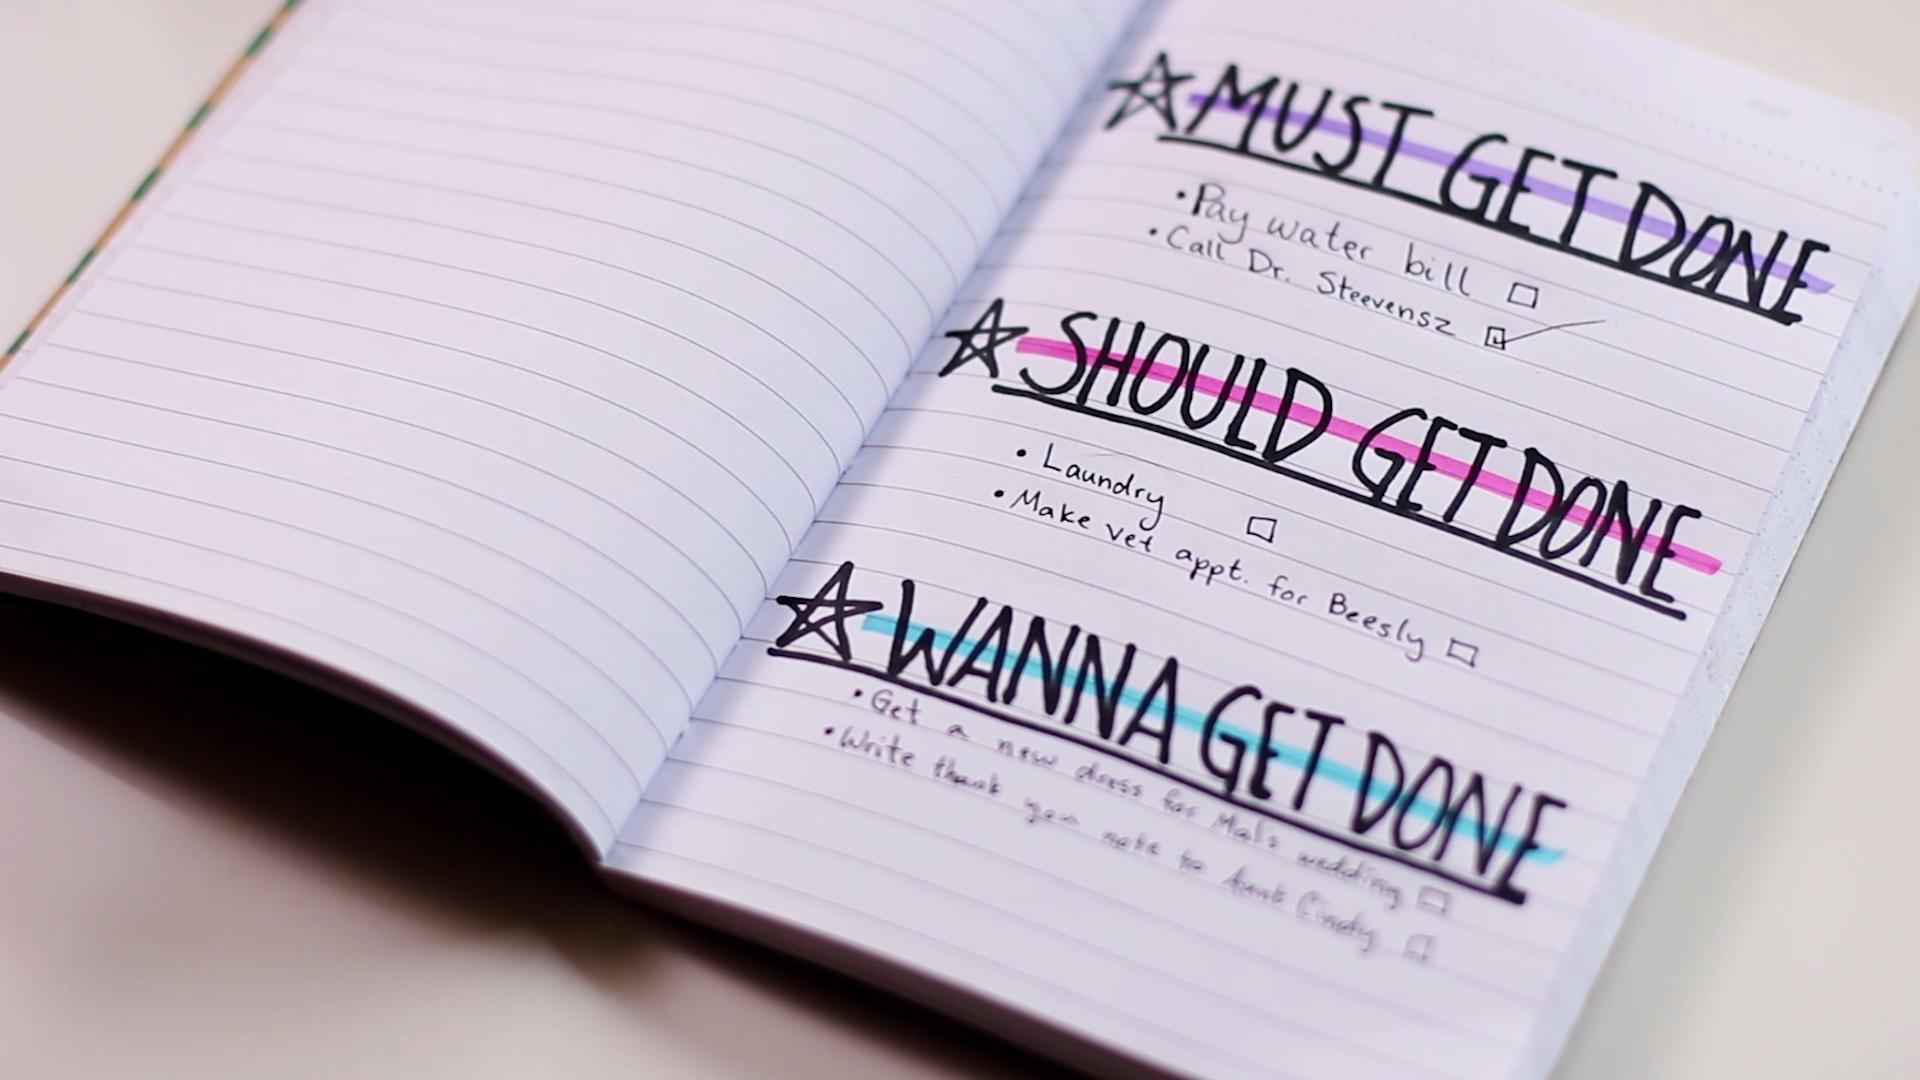 MUST GET DONE
• Pay water bill
• Call Dr. Steevensz
SHOULD GET DONE
• Laundry
• Make vet appt. for Beesly
WANNA GET DONE
• Get a new dress for Mal's wedding
• Write thank you note to Aunt Cindy